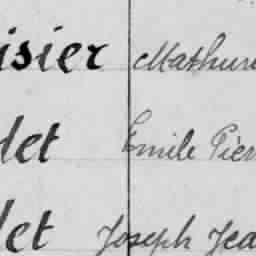 isier Mathure
det Emile Pier
let Joseph Jea